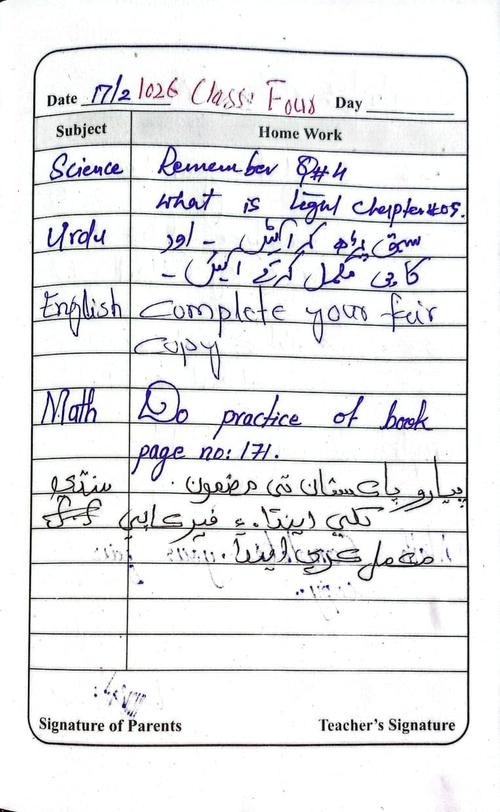 Date 17/2/026 Class: Four Day
Subject Home Work
Science Remember Q#4
what is light chapter #05.
Urdu سبق پڑھ کر آئیں - اور
کاپی مکمل کرکے آئیں -
English Complete your fair
copy
Math Do practice of book
page no: 171.
سنڌي پيارو پاڪستان تي مضمون
لکي اينداء فير ڪاپي
مڪمل ڪري ايندا.
Signature of Parents Teacher's Signature